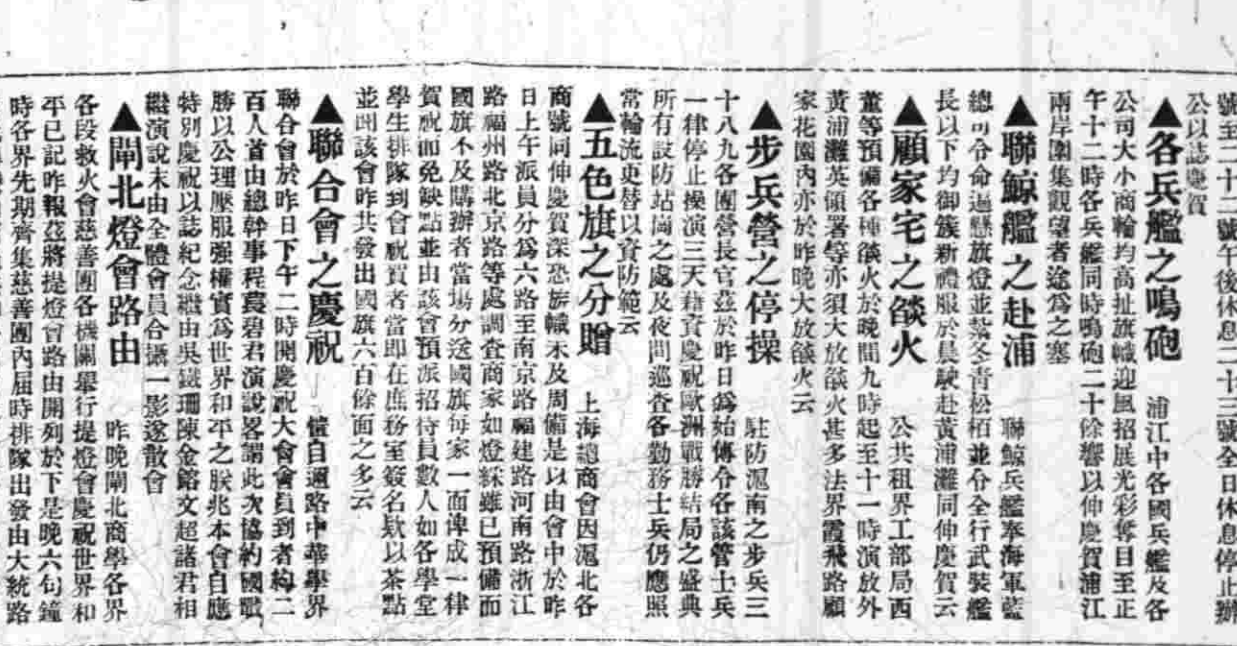 號至二十二號午後休息二十三號全日休息停止辦
公以誌慶賀
▲各兵艦之鳴砲　浦江中各國兵艦及各
公司大小商輪均高扯旗幟迎風招展光彩奪目至正
午十二時各兵艦同時鳴砲二十餘響以伸慶賀浦江
兩岸圍集觀望者途爲之塞
▲聯鯨艦之赴浦　聯鯨兵艦奉海軍藍
總司令命遍懸旗燈並紮冬青松栢並令全行武裝艦
長以下均御簇新禮服於晨駛赴黃浦灘同伸慶賀云
▲顧家宅之燄火　公共租界工部局西
董等預備各種燄火於晚間九時起至十一時演放外
黃浦灘英領署等亦須大放燄火甚多法界霞飛路顧
家花園內亦於昨晚大放燄火云
▲步兵營之停操　駐防滬南之步兵三
十八九各團營長官茲於昨日爲始傳令各該營士兵
一律停止操演三天藉資慶祝歐洲戰勝結局之盛典
所有設防站崗之處及夜間巡查各勤務士兵仍應照
常輪流更替以資防範云
▲五色旗之分贈　上海總商會因滬北各
商號同伸慶賀深恐旂幟未及周備是以由會中於昨
日上午派員分爲六路至南京路福建路河南路浙江
路福州路北京路等處調查商家如燈綵雖已預備而
國旗不及購辦者當場分送國旗每家一面俾成一律
▲聯合會之慶祝　愷自邇路中華學界
聯合會於昨日下午二時開慶祝大會會員到者約二
百人首由總幹事程　碧君演說畧謂此次協約國戰
勝以公理壓服强權實爲世界和平之朕兆本會自應
特別慶祝以誌紀念繼由吳鐵珊陳金鎔文超諸君相
繼演說末由全體會員合攝一影遂散會
賀祝而免缺點並由該會預派招待員數人如各學堂
學生排隊到會祝賀者當即在庶務室簽名欵以茶點
並聞該會昨共發出國旗六百餘面之多云
▲閘北燈會路由　昨晚閘北商學各界
各段救火會慈善團各機關舉行提燈會慶祝世界和
平已記昨報茲將提燈會路由開列於下是晚六句鐘
時各界先期齊集慈善團內屆時排隊出發由大統路